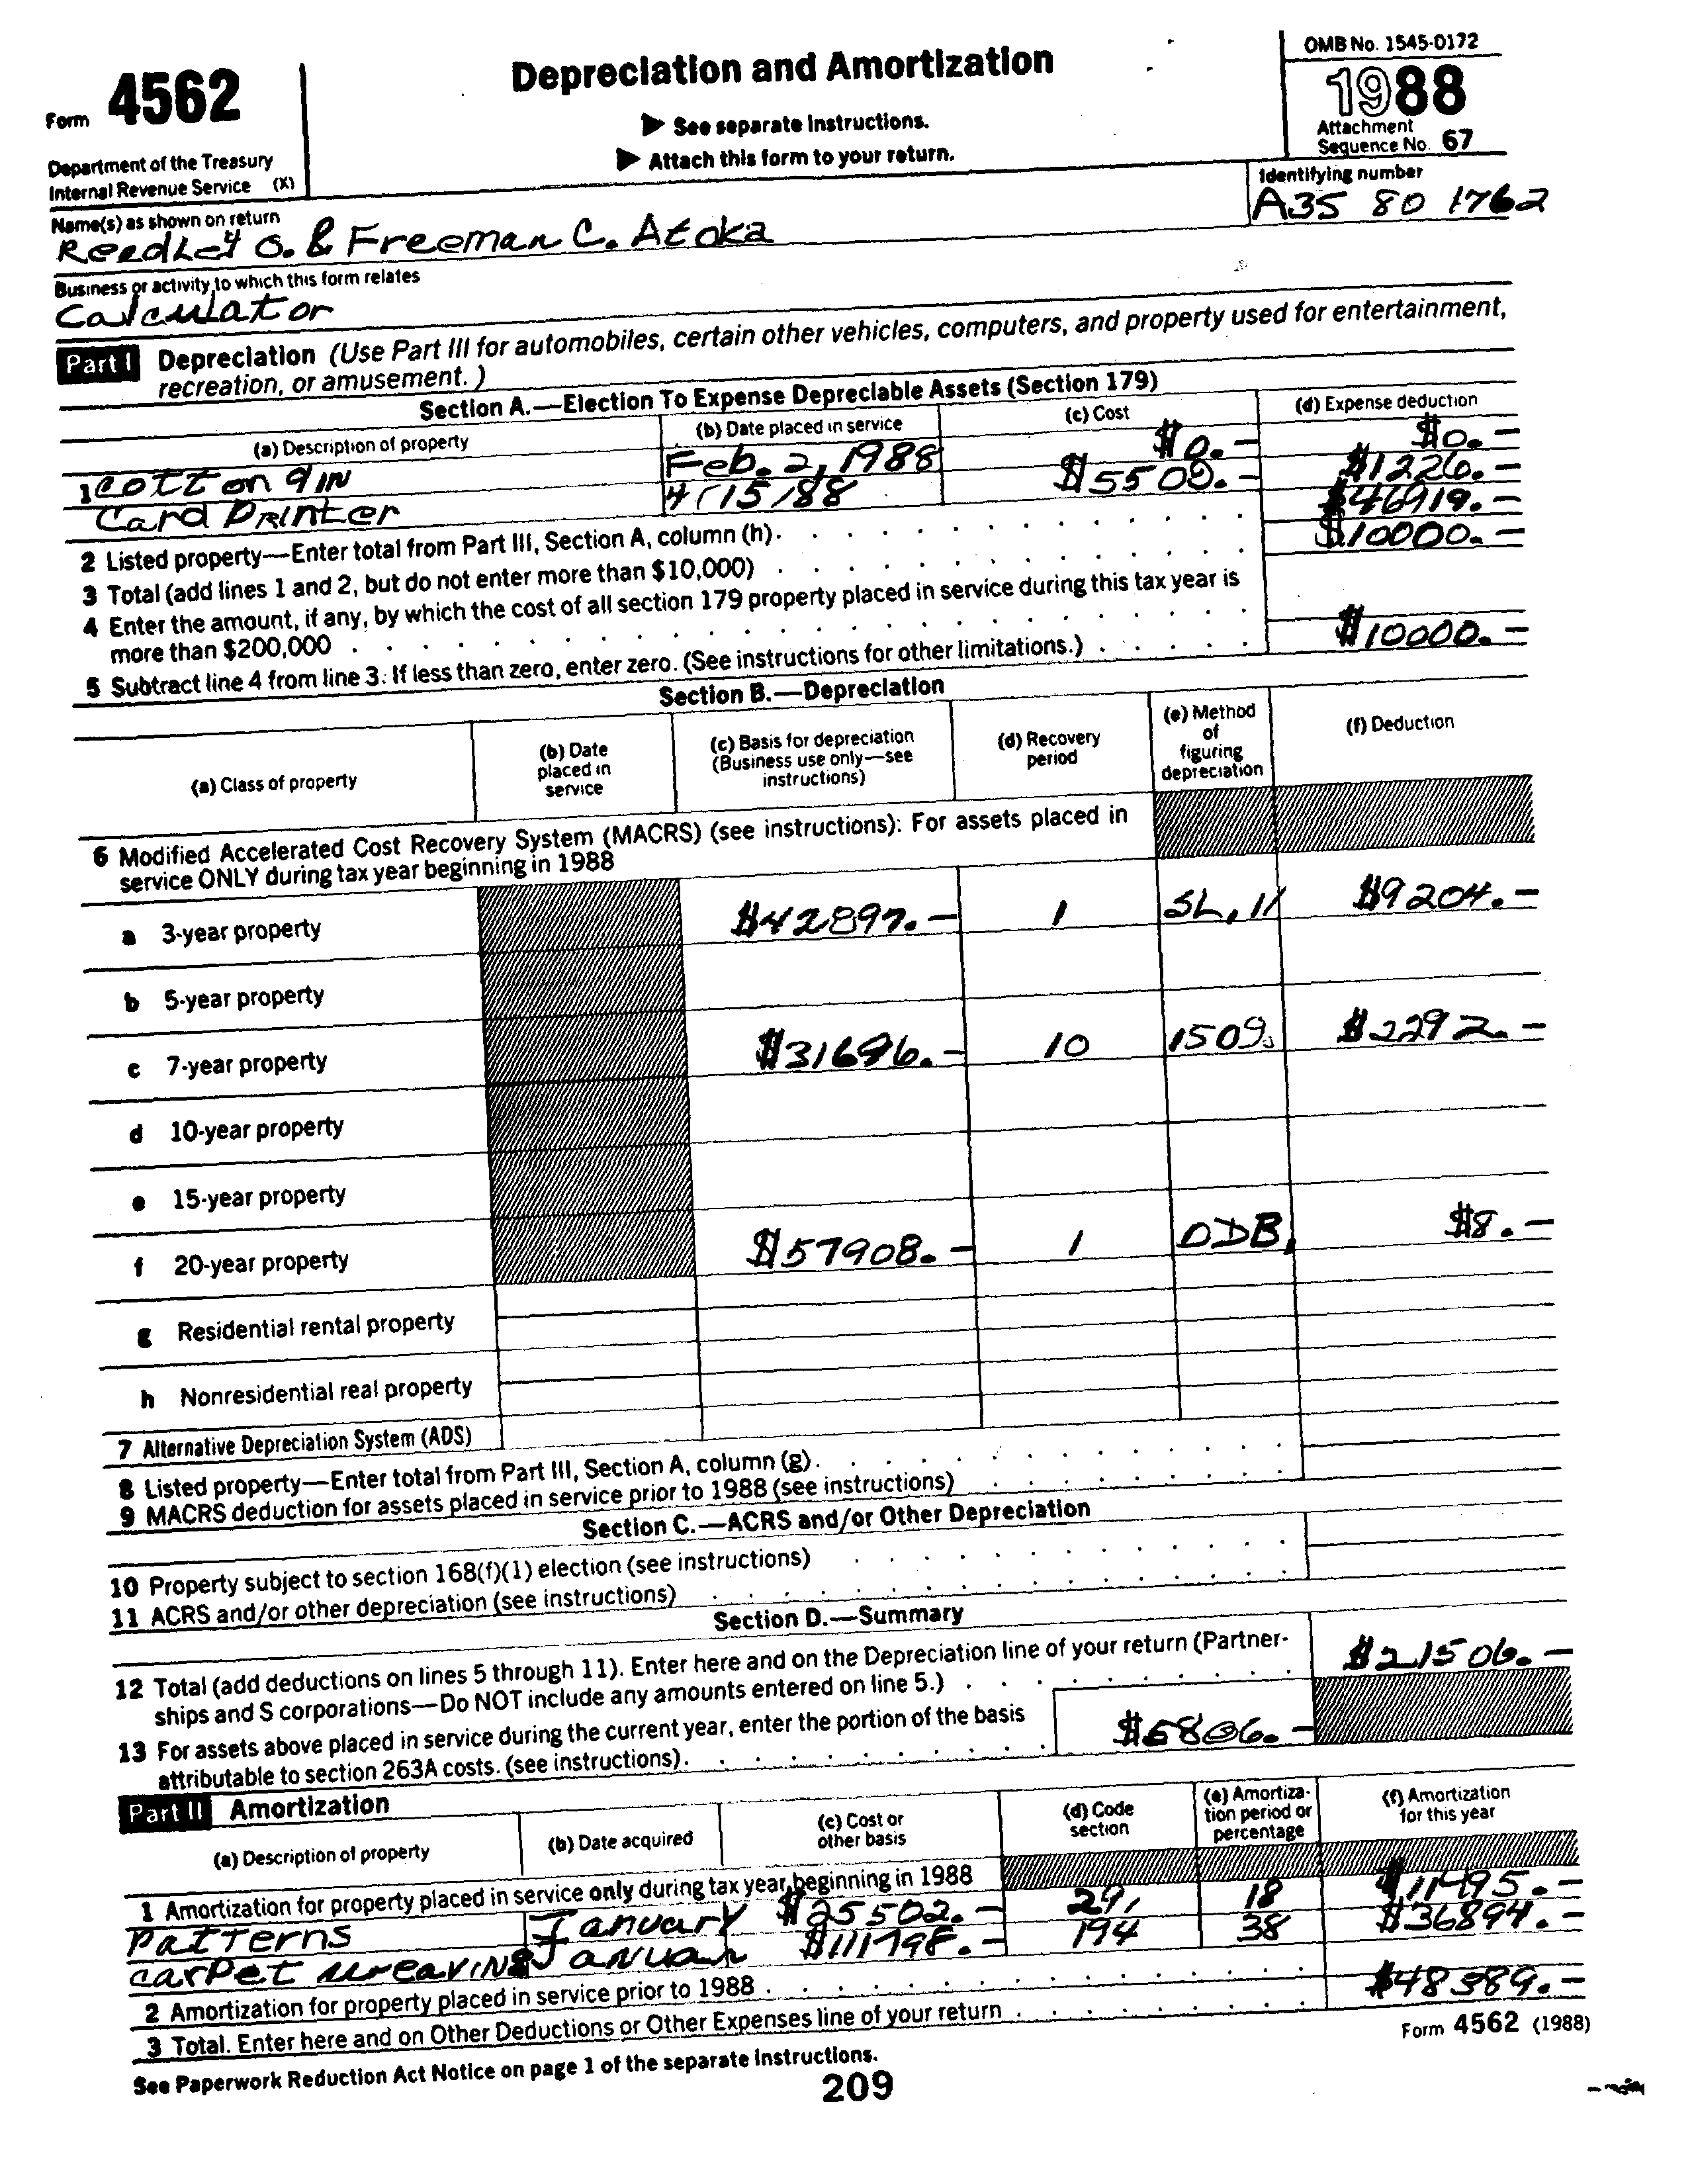 Form 4562
Department of the Treasury
Internal Revenue Service (X)
Depreciation and Amortization
▶ See separate instructions.
▶ Attach this form to your return.
OMB No. 1545-0172
1988
Attachment
Sequence No. 67
Name(s) as shown on return
Reedley O. & Freeman C. Atoka
Identifying number
A35 80 1762
Business or activity to which this form relates
Calculator
Part I Depreciation (Use Part III for automobiles, certain other vehicles, computers, and property used for entertainment,
recreation, or amusement.)
Section A.—Election To Expense Depreciable Assets (Section 179)
(a) Description of property (b) Date placed in service (c) Cost (d) Expense deduction
1 Cotton gin Feb. 2, 1988 $0.- $0.-
Card Printer 4/15/88 $5500.- $1226.-
2 Listed property—Enter total from Part III, Section A, column (h). $46919.-
3 Total (add lines 1 and 2, but do not enter more than $10,000) $10000.-
4 Enter the amount, if any, by which the cost of all section 179 property placed in service during this tax year is
more than $200,000
5 Subtract line 4 from line 3. If less than zero, enter zero. (See instructions for other limitations.) $10000.-
Section B.—Depreciation
(a) Class of property (b) Date placed in service (c) Basis for depreciation (Business use only—see instructions) (d) Recovery period (e) Method of figuring depreciation (f) Deduction
6 Modified Accelerated Cost Recovery System (MACRS) (see instructions): For assets placed in
service ONLY during tax year beginning in 1988
a 3-year property $42897.- 1 SL, 11 $9204.-
b 5-year property
c 7-year property 10 $2292.-
d 10-year property
e 15-year property
f 20-year property $57908.- 1 ODB, $8.-
g Residential rental property
h Nonresidential real property
7 Alternative Depreciation System (ADS)
8 Listed property—Enter total from Part III, Section A, column (g).
9 MACRS deduction for assets placed in service prior to 1988 (see instructions)
Section C.—ACRS and/or Other Depreciation
10 Property subject to section 168(f)(1) election (see instructions)
11 ACRS and/or other depreciation (see instructions)
Section D.—Summary
12 Total (add deductions on lines 5 through 11). Enter here and on the Depreciation line of your return (Partner-
ships and S corporations—Do NOT include any amounts entered on line 5.) $21506.-
13 For assets above placed in service during the current year, enter the portion of the basis
attributable to section 263A costs. (see instructions).
Part II Amortization
(a) Description of property (b) Date acquired (c) Cost or other basis (d) Code section (e) Amortization period or percentage (f) Amortization for this year
1 Amortization for property placed in service only during tax year beginning in 1988
Patterns January $25502.- 29, 18 $11495.-
carpet January 194 38 $36894.-
2 Amortization for property placed in service prior to 1988
3 Total. Enter here and on Other Deductions or Other Expenses line of your return $48389.-
See Paperwork Reduction Act Notice on page 1 of the separate instructions.
Form 4562 (1988)
209